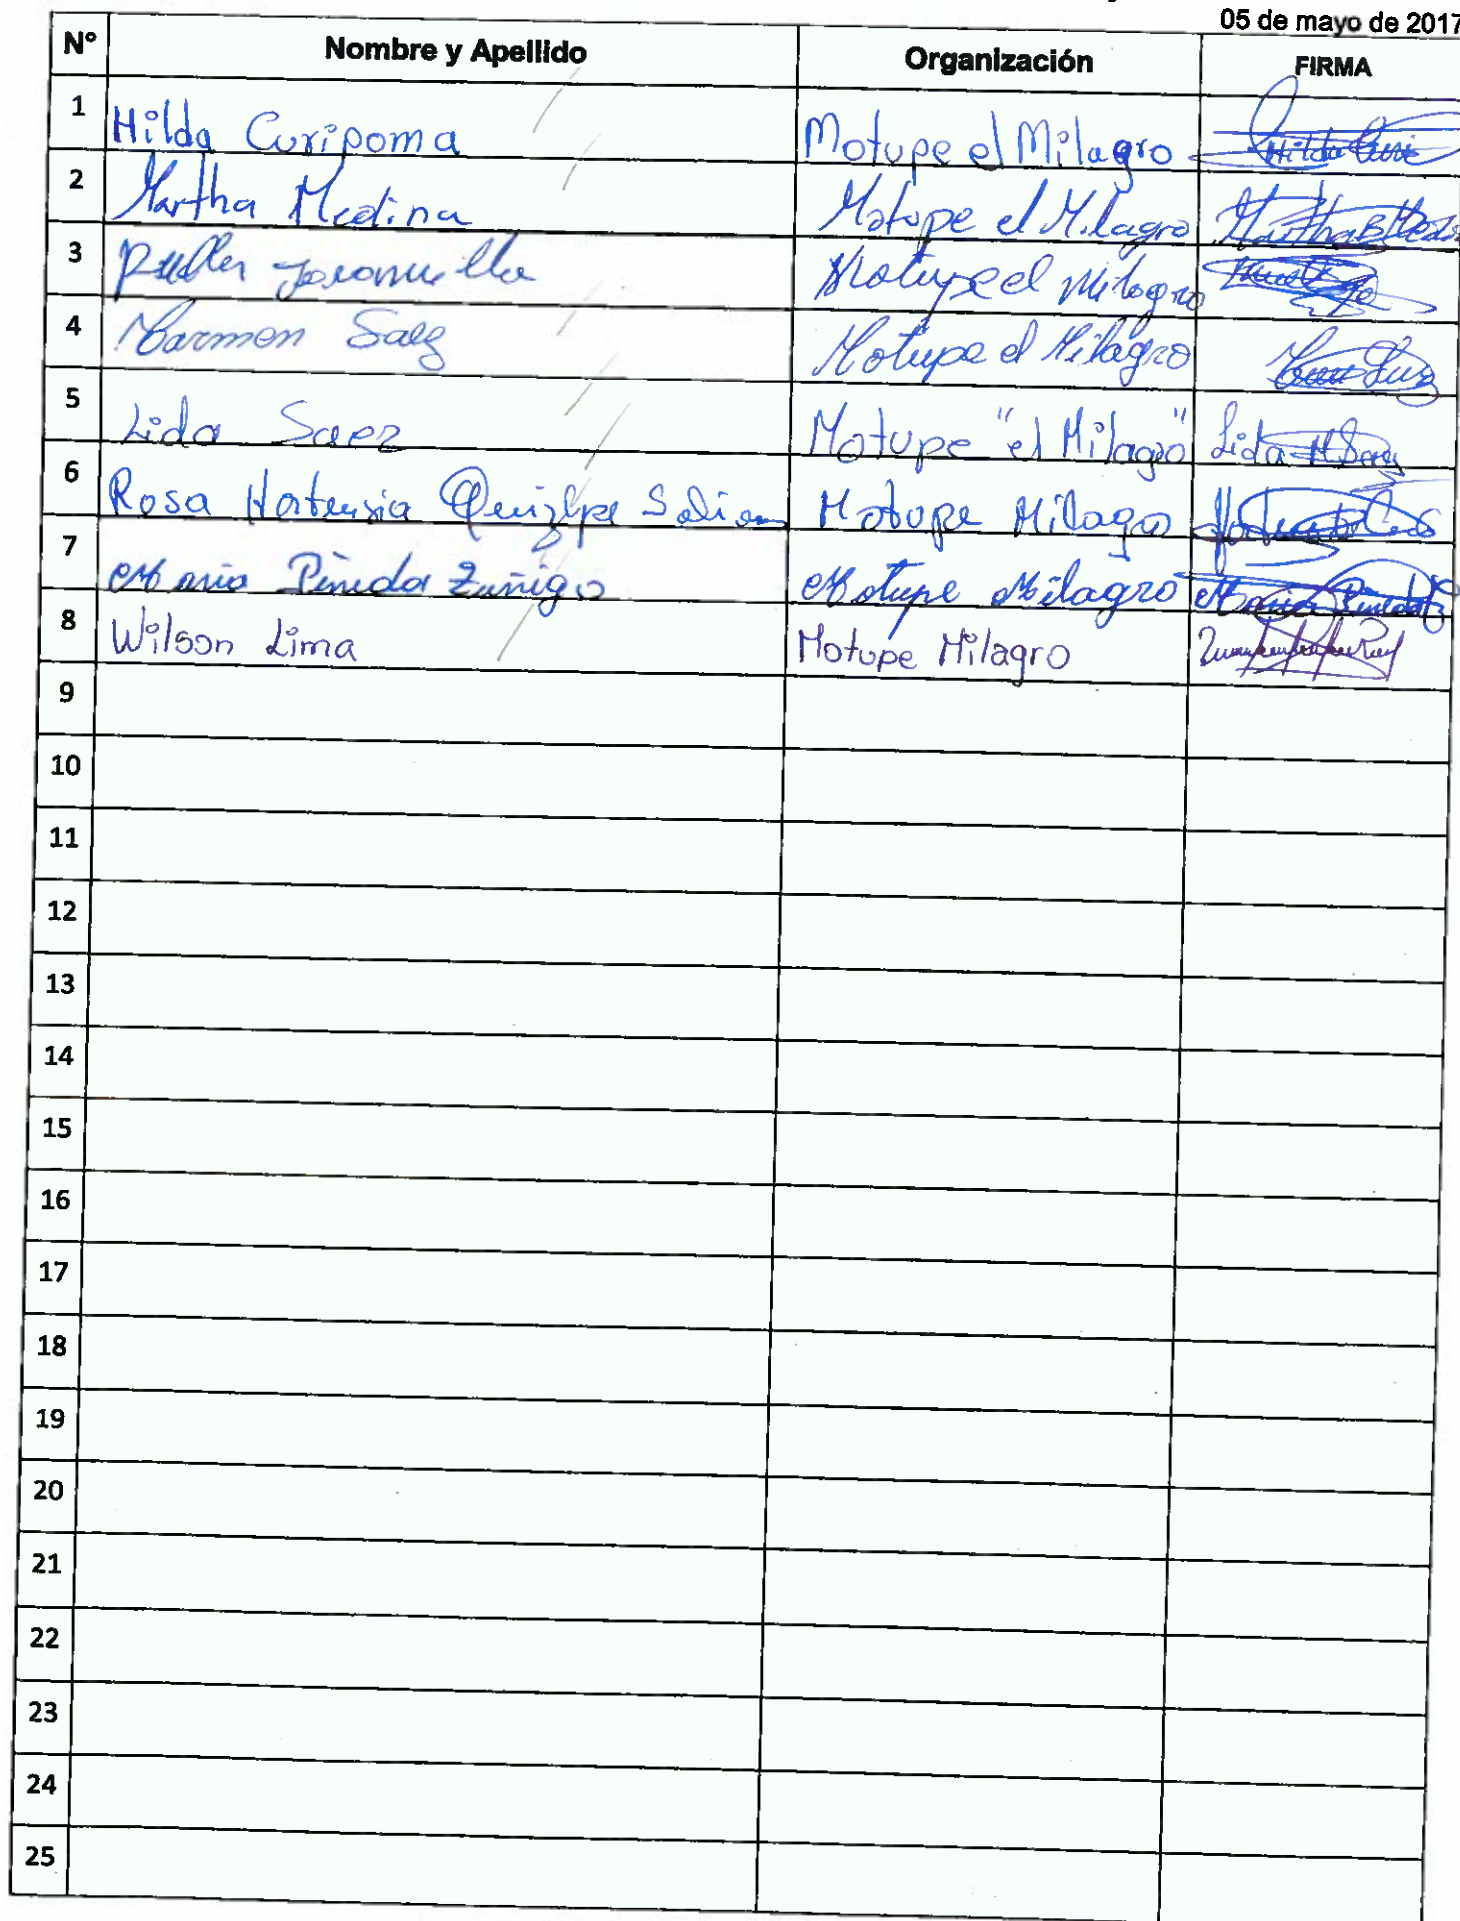 05 de mayo de 2017
N° Nombre y Apellido Organización FIRMA
1 Hilda Curipoma Motupe el Milagro Hilda Curi
2 Martha Medina Motupe el Milagro Martha B Med
3 Jaramillo Motupe el Milagro
4 Carmen Saez Motupe el Milagro
5 Lida Saez Motupe "el Milagro" Lida M Saez
6 Rosa Hortensia Quizhpe Motupe Milagro
7 Maria Pineda Zuñiga Motupe Milagro Maria Pineda Z
8 Wilson Lima Motupe Milagro
9
10
11
12
13
14
15
16
17
18
19
20
21
22
23
24
25